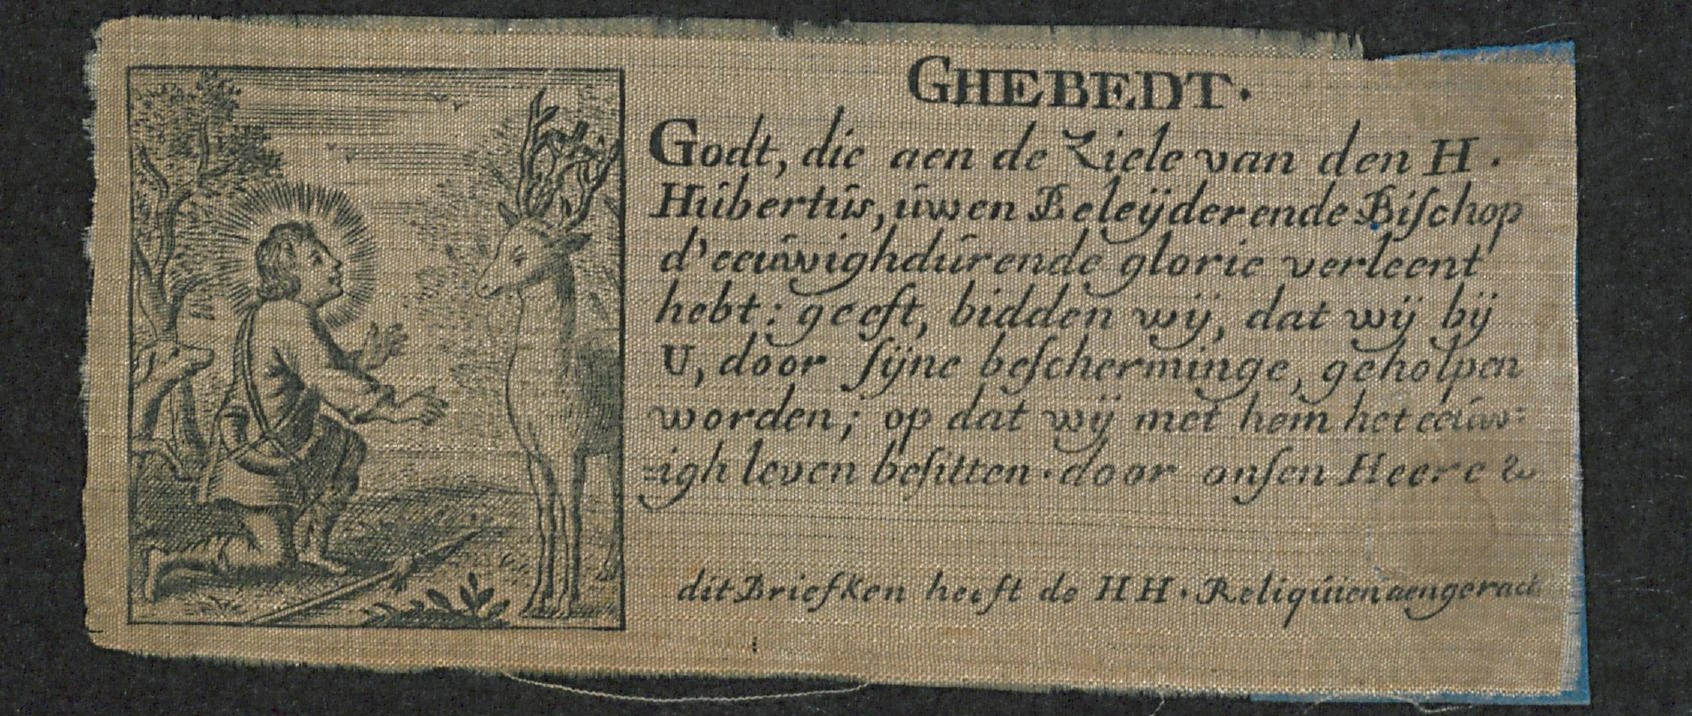 GHEBEDT.
Godt, die aen de Ziele van den H.
Húbertús, úwen Beleÿderende Biſchop
d'eeúwighdúrende glorie verleent
hebt: geeft, bidden wÿ, dat wÿ bÿ
U, door ſÿne beſcherminge, geholpen
worden; op dat wÿ met hem het eeúw=
=igh leven beſitten. door onſen Heere &c
dit Briefken heeft de HH. Reliqúien aengeraekt